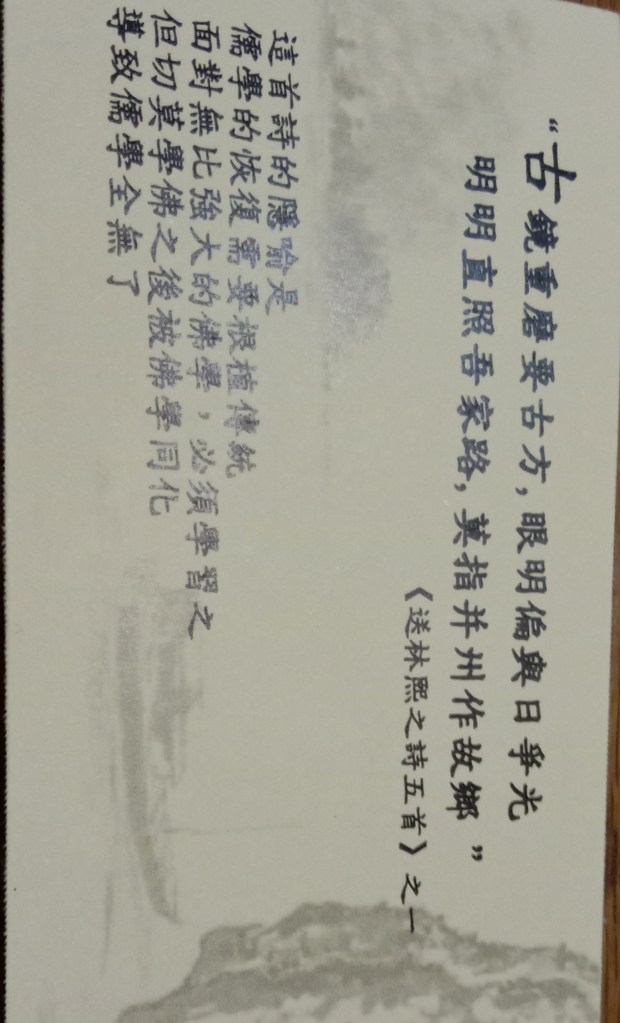 “古鏡重磨要古方，眼明偏與日爭光
明明直照吾家路，莫指并州作故鄉”
《送林熙之詩五首》之一
這首詩的隱喻是
儒學的恢復需要根植傳統
面對無比強大的佛學，必須學習之
但切莫學佛之後被佛學同化
導致儒學全無了